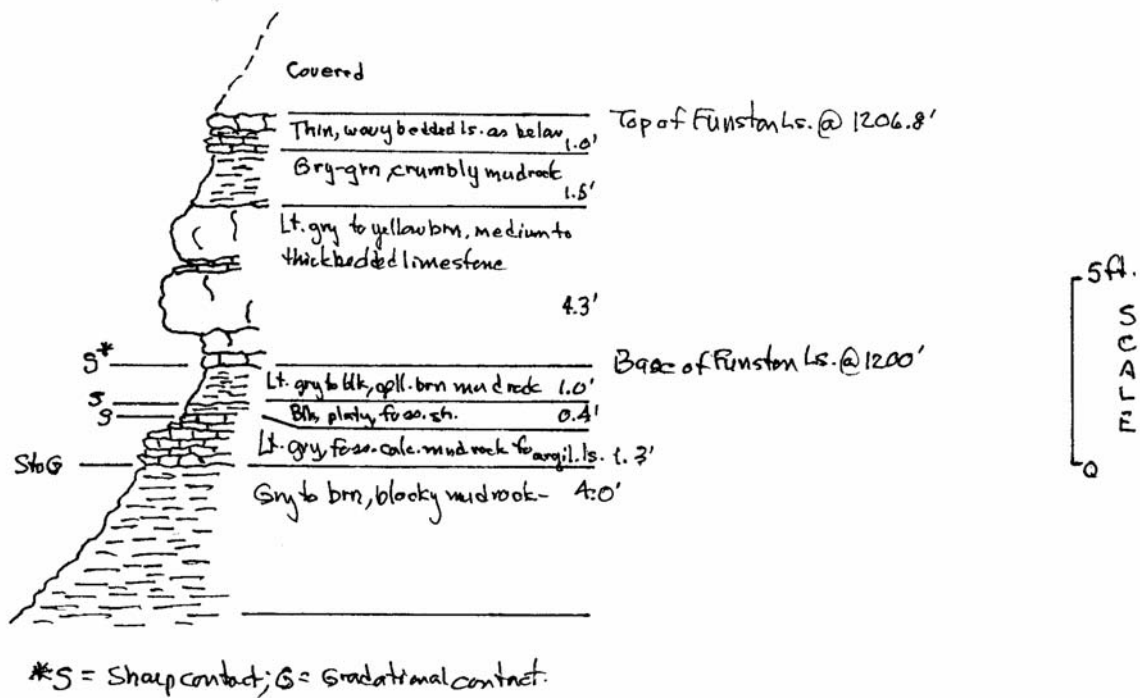 Covered
Top of Funston Ls. @ 1206.8'
Thin, wavy bedded ls. as below
1.0'
Gry-grn, crumbly mudrock
1.5'
Lt. gry to yellow brn, medium to
thick bedded limestone
4.3'
5ft.
SCALE
0
S*
Base of Funston Ls. @ 1200'
Lt. gry to blk, brn mudrock 1.0'
S
S
Blk, platy, foss. sh. 0.4'
Lt. gry, foss. calc. mudrock to argil. ls. 1.3'
StoG
Gry to brn, blocky mudrock- 4.0'
*S = Sharp contact; G = Gradational contact.